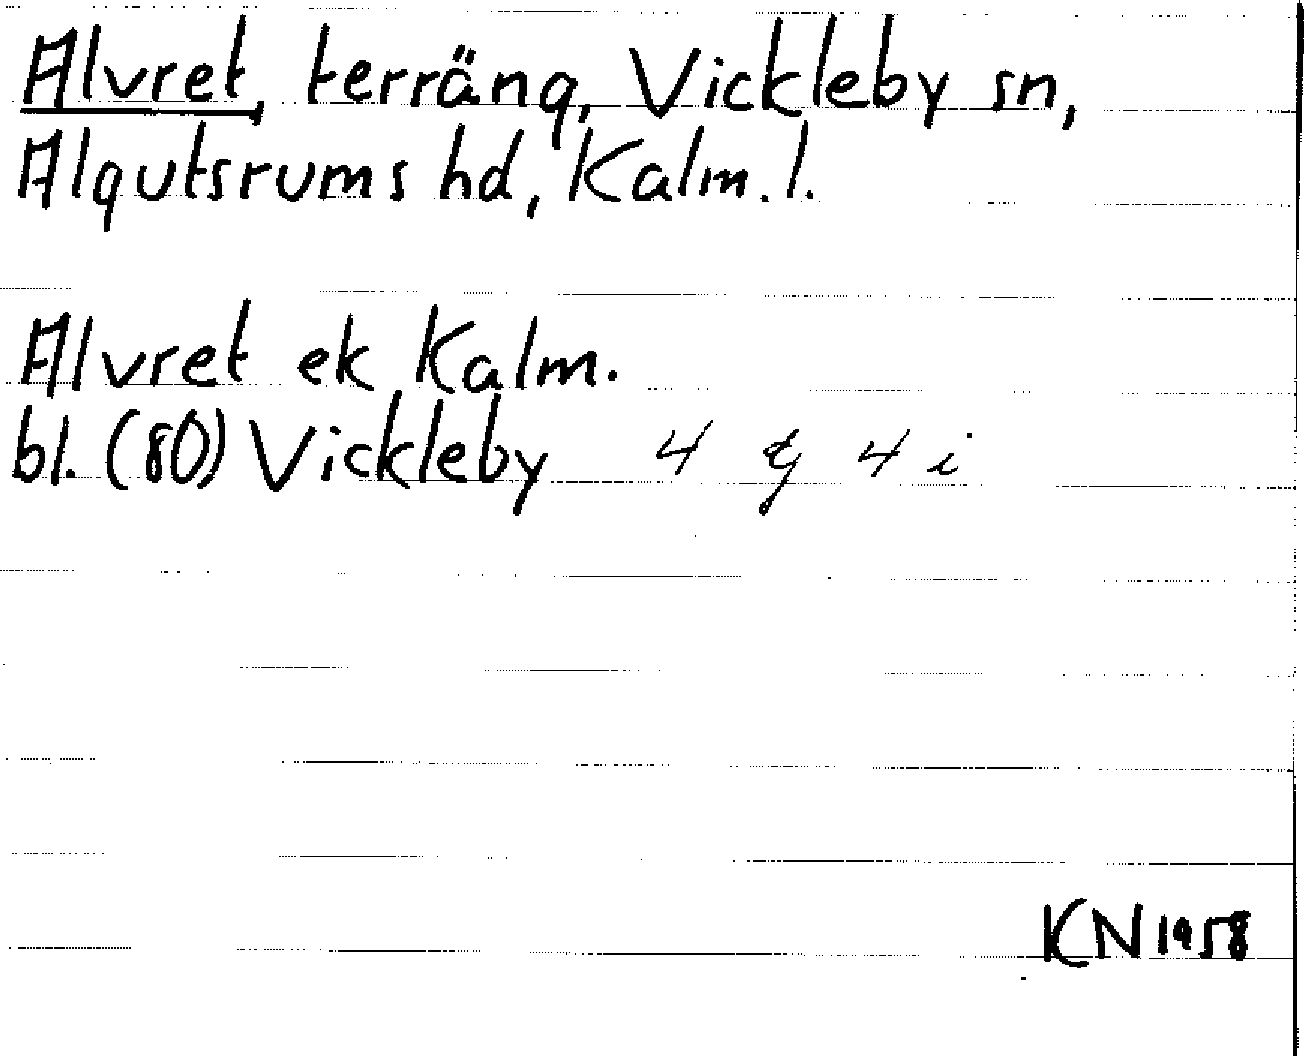 Alvret, terräng, Vickleby sn,
Algutsrums hd, Kalm. l.
Alvret ek Kalm.
bl. (80) Vickleby 4 g 4 i
KN 1958